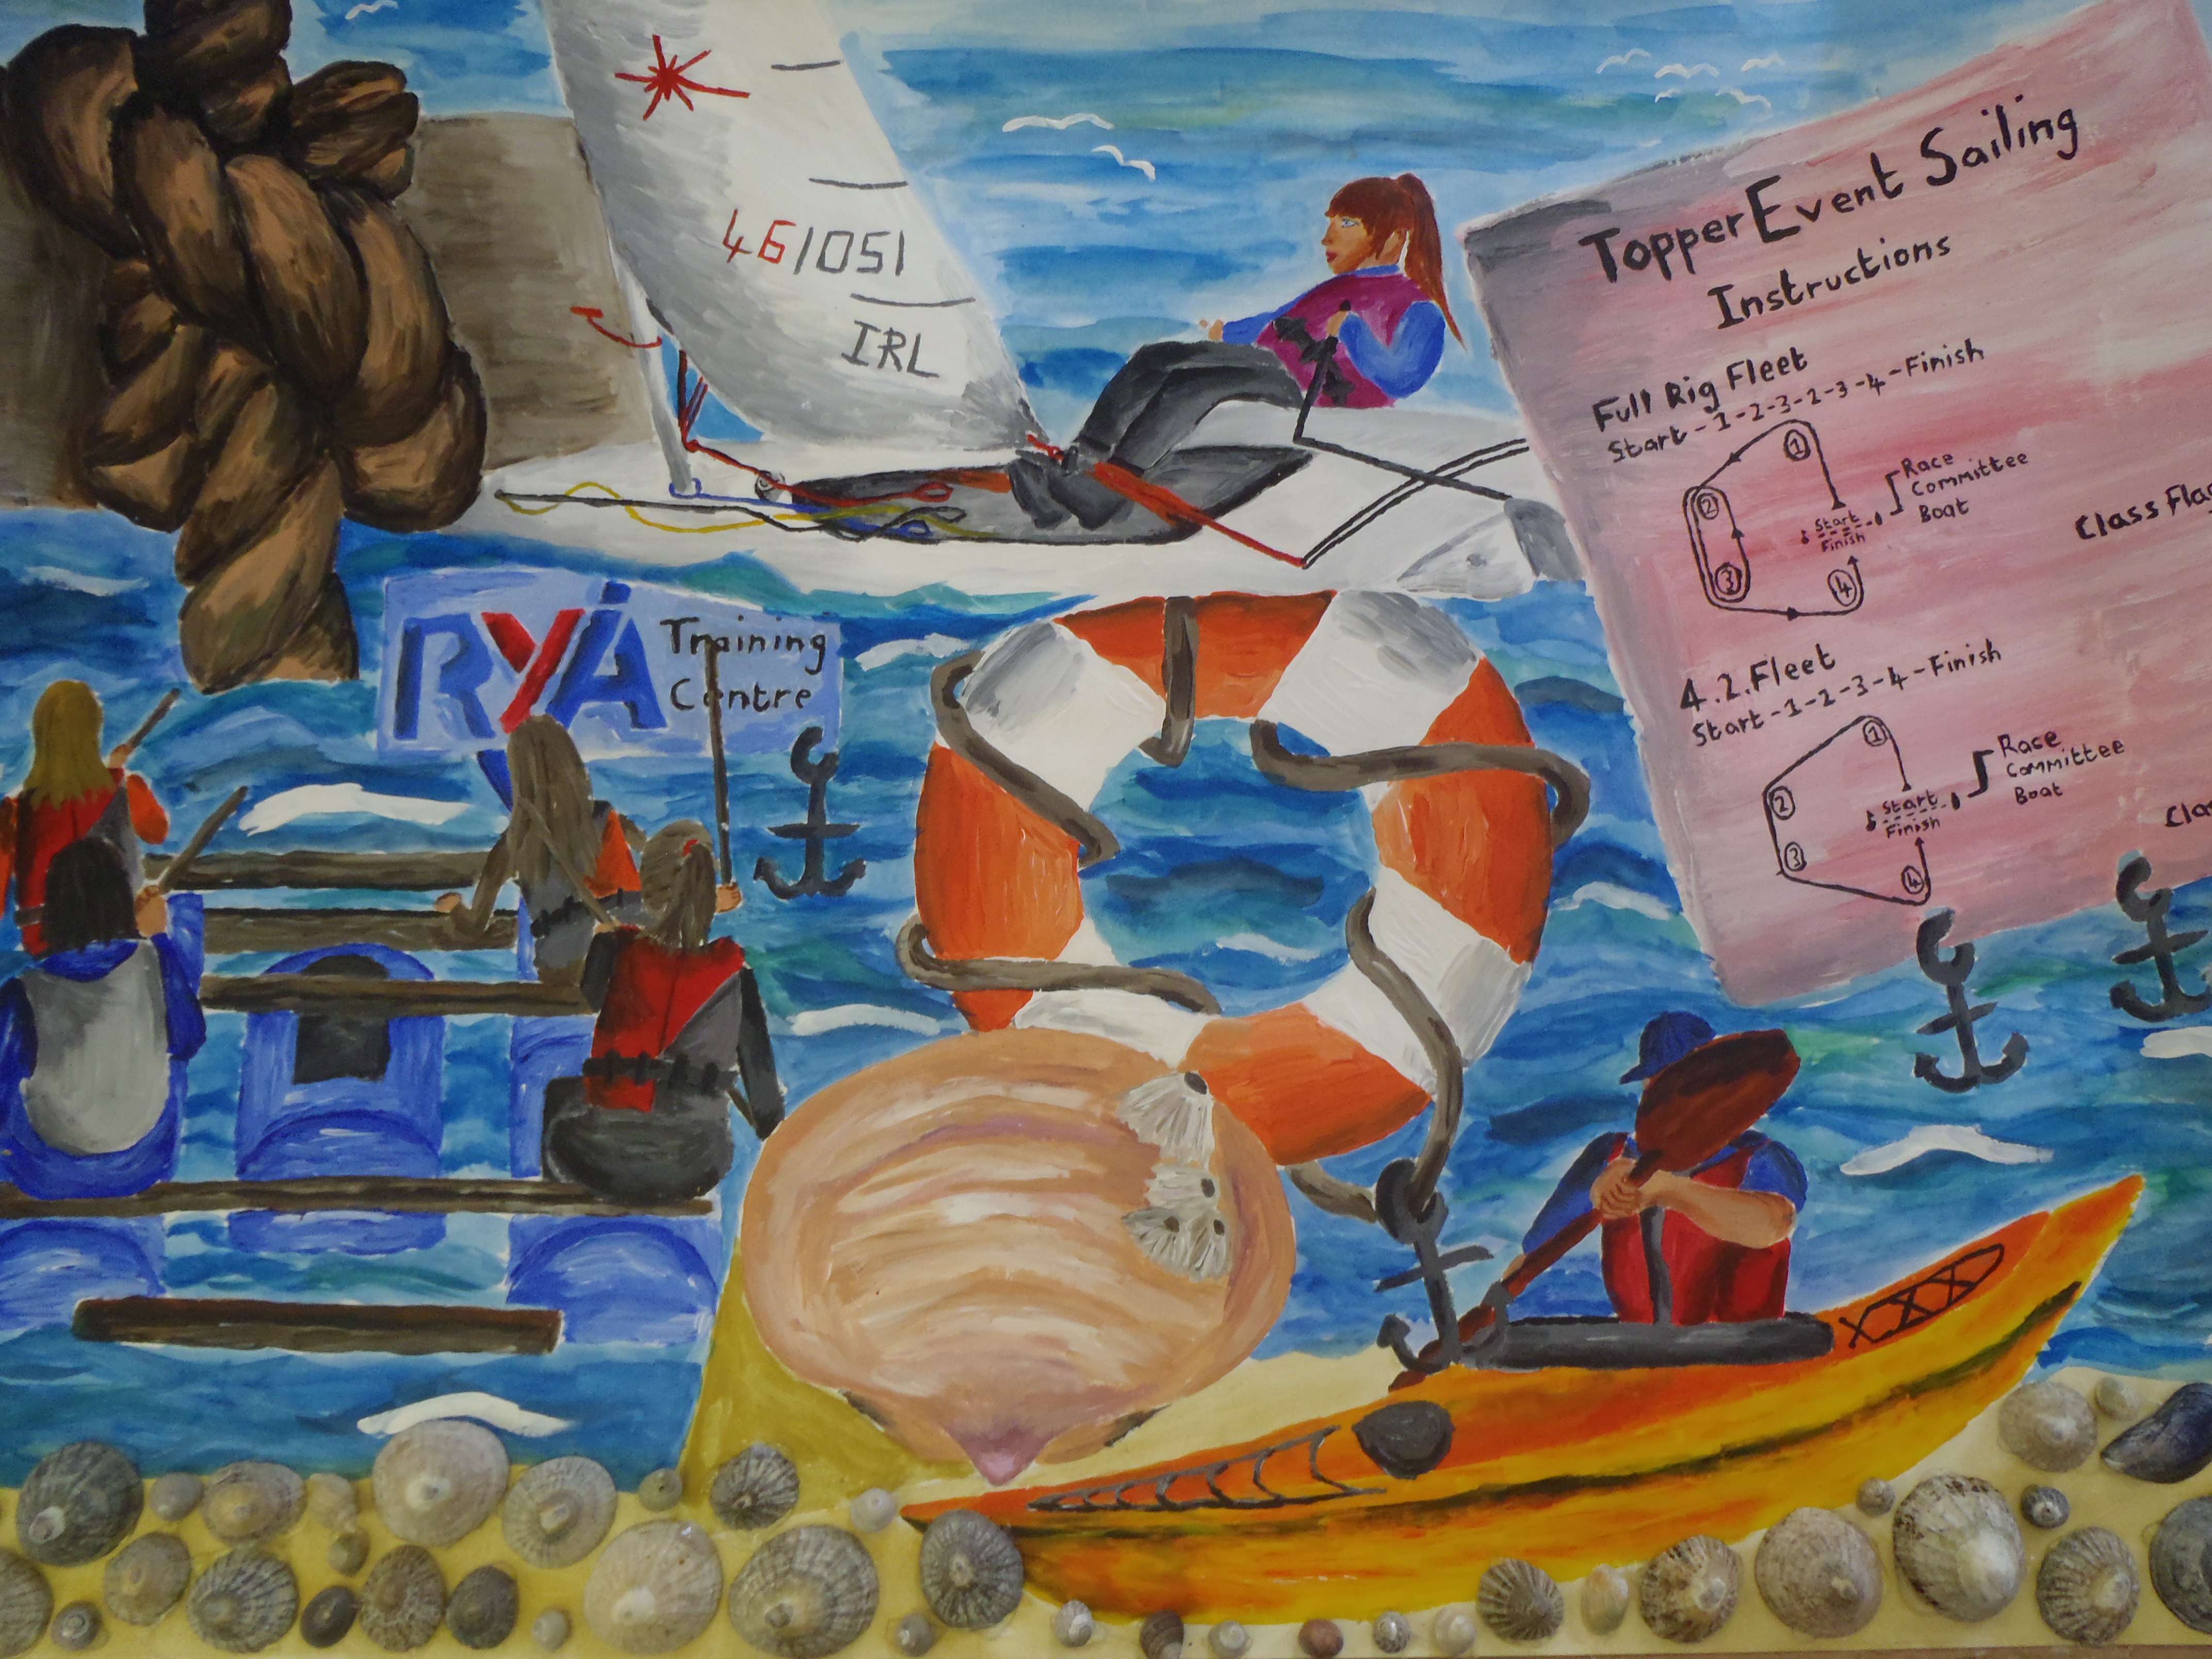 461051
IRL
RYA Training
Centre
Topper Event Sailing
Instructions
Full Rig Fleet
Start-1-2-3-2-3-4-Finish
1
2
3
4
Start
Finish
Race
Committee
Boat
Class Flag
4.2. Fleet
Start-1-2-3-4-Finish
1
2
3
4
Start
Finish
Race
Committee
Boat
Cla